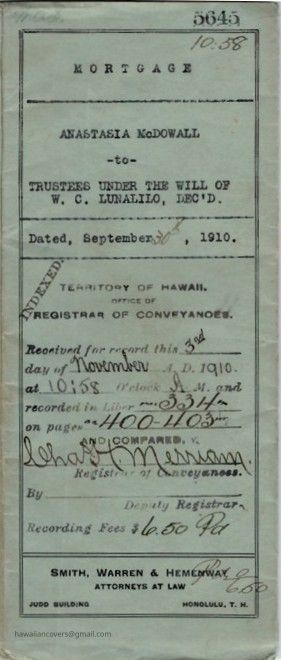 5645
10:58
MORTGAGE
ANASTASIA McDOWALL
-to-
TRUSTEES UNDER THE WILL OF
W. C. LUNALILO, DEC'D.
Dated, September 30th, 1910.
INDEXED.
TERRITORY OF HAWAII.
OFFICE OF
REGISTRAR OF CONVEYANCES.
Received for record this 3rd
day of November A. D. 1910.
at 10:58 O'clock A M. and
recorded in Liber 334
on pages 400-403
AND COMPARED.
Chas H Merriam
Registrar of Conveyances.
By
Deputy Registrar
Recording Fees $ 6.50 Pd
SMITH, WARREN & HEMENWAY
6.50
ATTORNEYS AT LAW
JUDD BUILDING HONOLULU, T. H.
hawaiiancovers@gmail.com